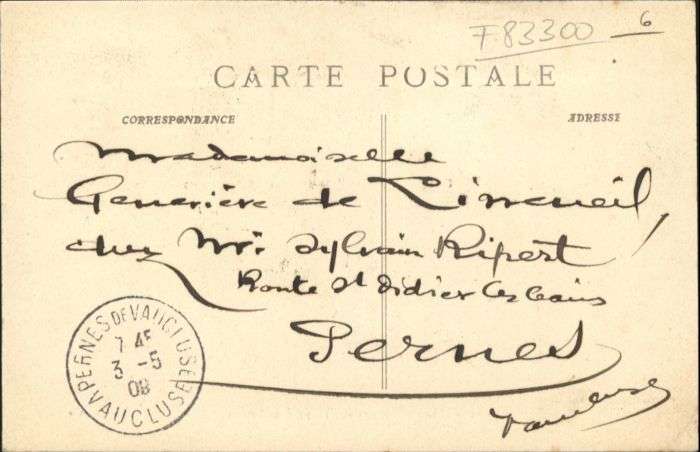 F83300 6
CARTE POSTALE
CORRESPONDANCE
ADRESSE
Mademoiselle
Geneviève de
chez Mr Sylvain Ripert
Route St Didier les bains
Pernes
Vaucluse
PERNES DE VAUCLUSE
7 45
3 - 5
08
VAUCLUSE